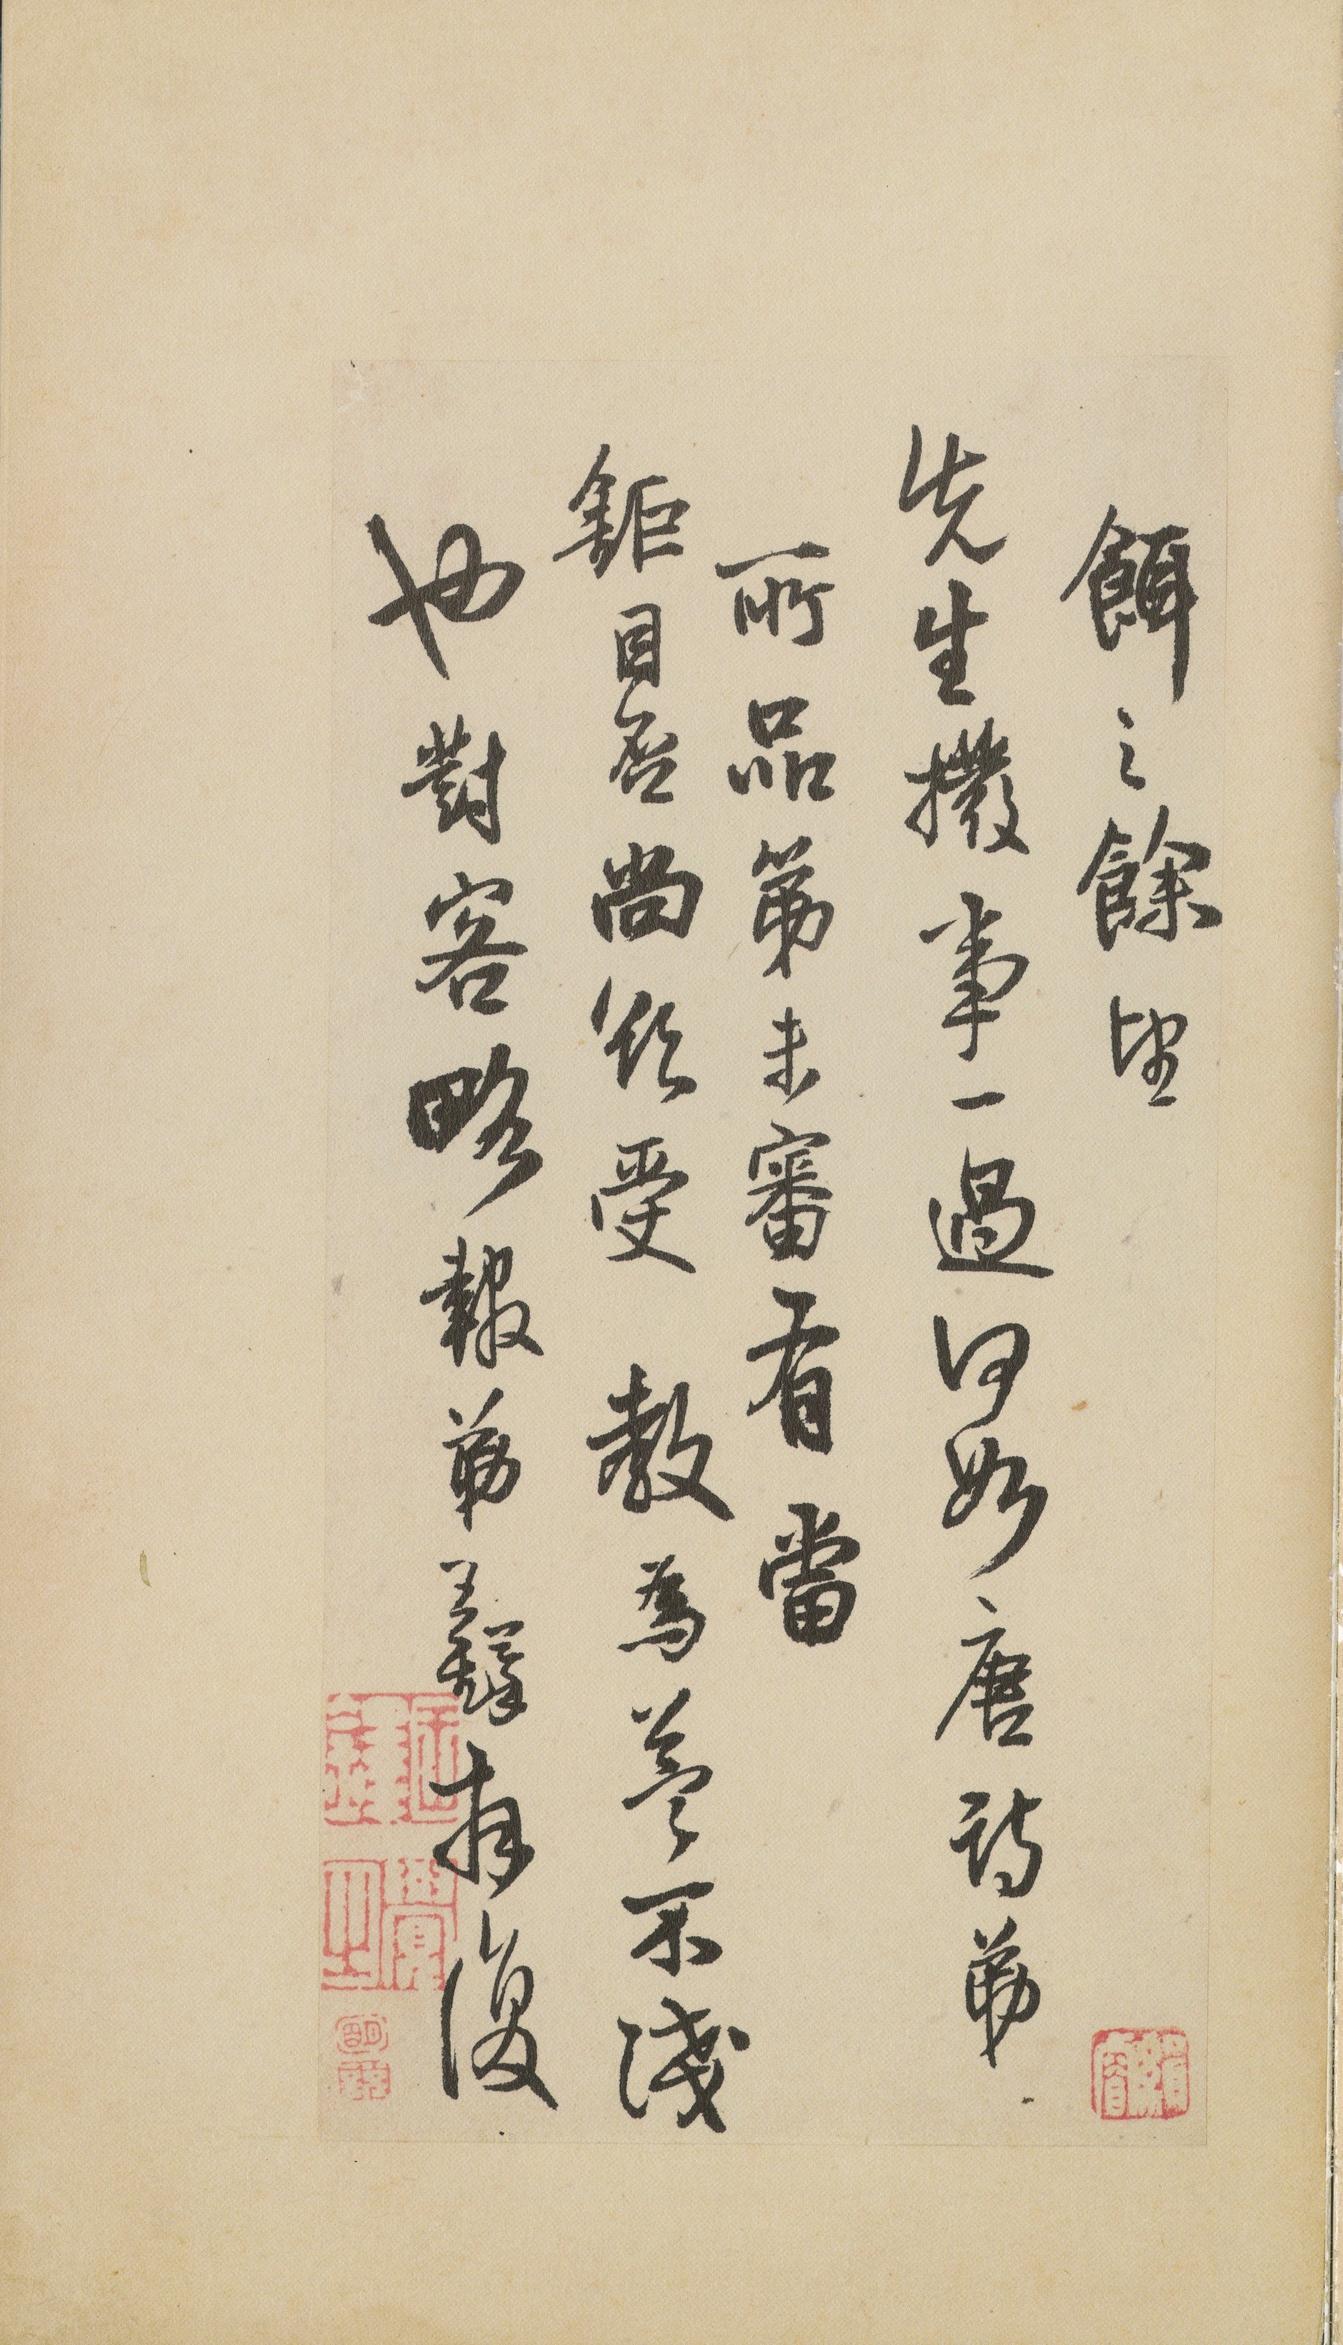 餌之餘望
先生撥事一過何如唐詩弟
所品第未審有當
鉅目否尚欲受教為益不淺
也對客略報弟再復